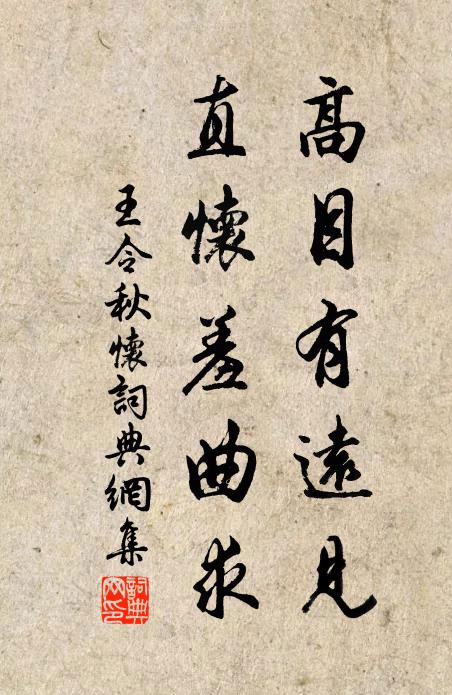 高目有遠見
直懷羞曲求
王令秋懷詞典網集
詞典
网印